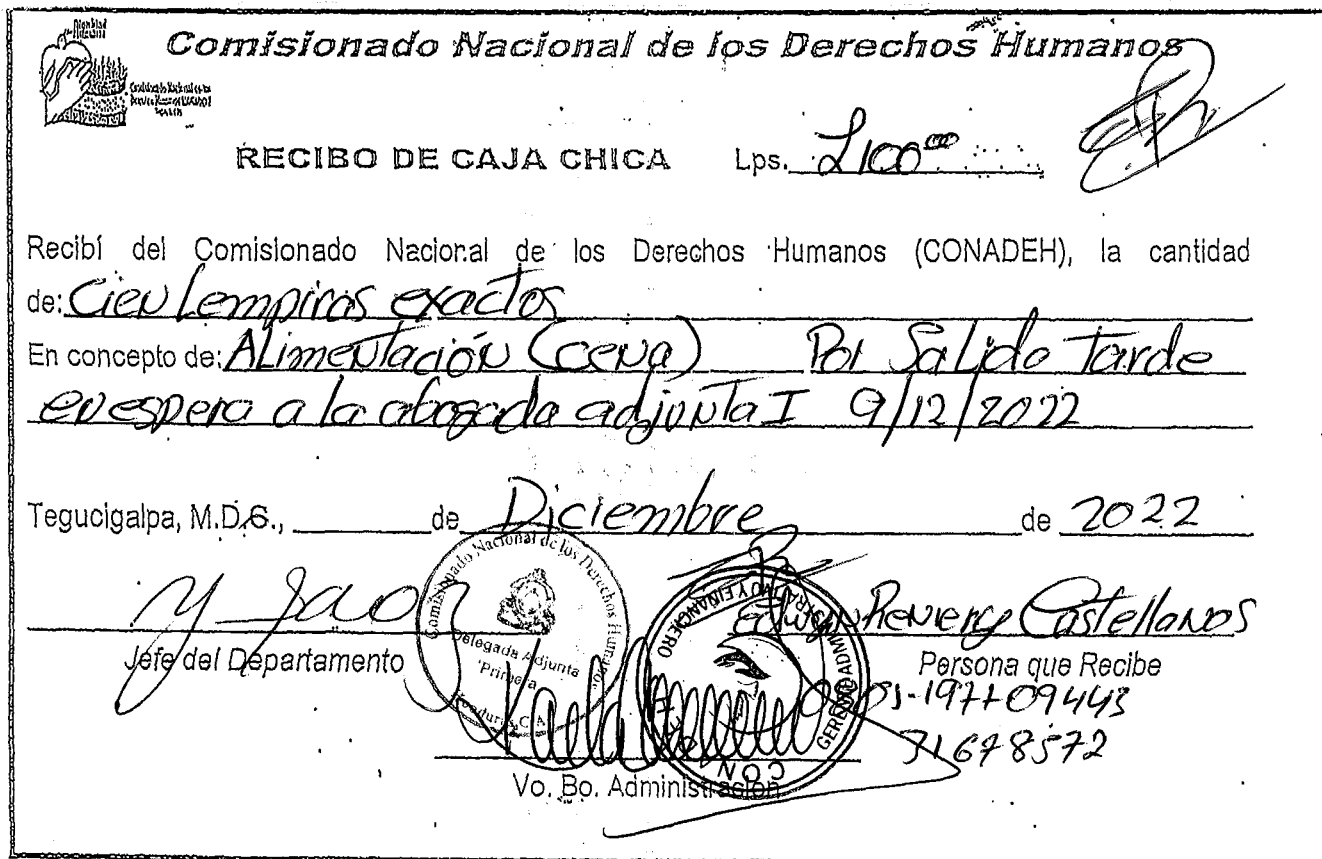 Dignidad Humana
Comisionado Nacional de los Derechos Humanos
RECIBO DE CAJA CHICA Lps. L100.00
Recibí del Comisionado Nacional de los Derechos Humanos (CONADEH), la cantidad
de: Cien Lempiras exactos
En concepto de: Alimentación (cena) Por Salida Tarde
en espera a la abogada adjunta I 9/12/2022
Tegucigalpa, M.D.C., de Diciembre de 2022
Comisionado Nacional de los Derechos Humanos
Delegada Adjunta
Primera
Honduras, C.A.
GERENCIA ADMINISTRATIVO Y FINANCIERO
Reniery Castellanos
Jefe del Departamento
Persona que Recibe
31678572
Vo. Bo. Administración